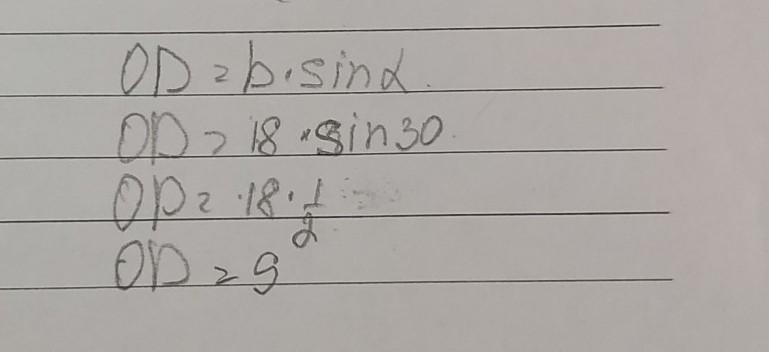 OD = b · sinα.
OD = 18 · sin30.
OD = 18 · 1/2
OD = 9